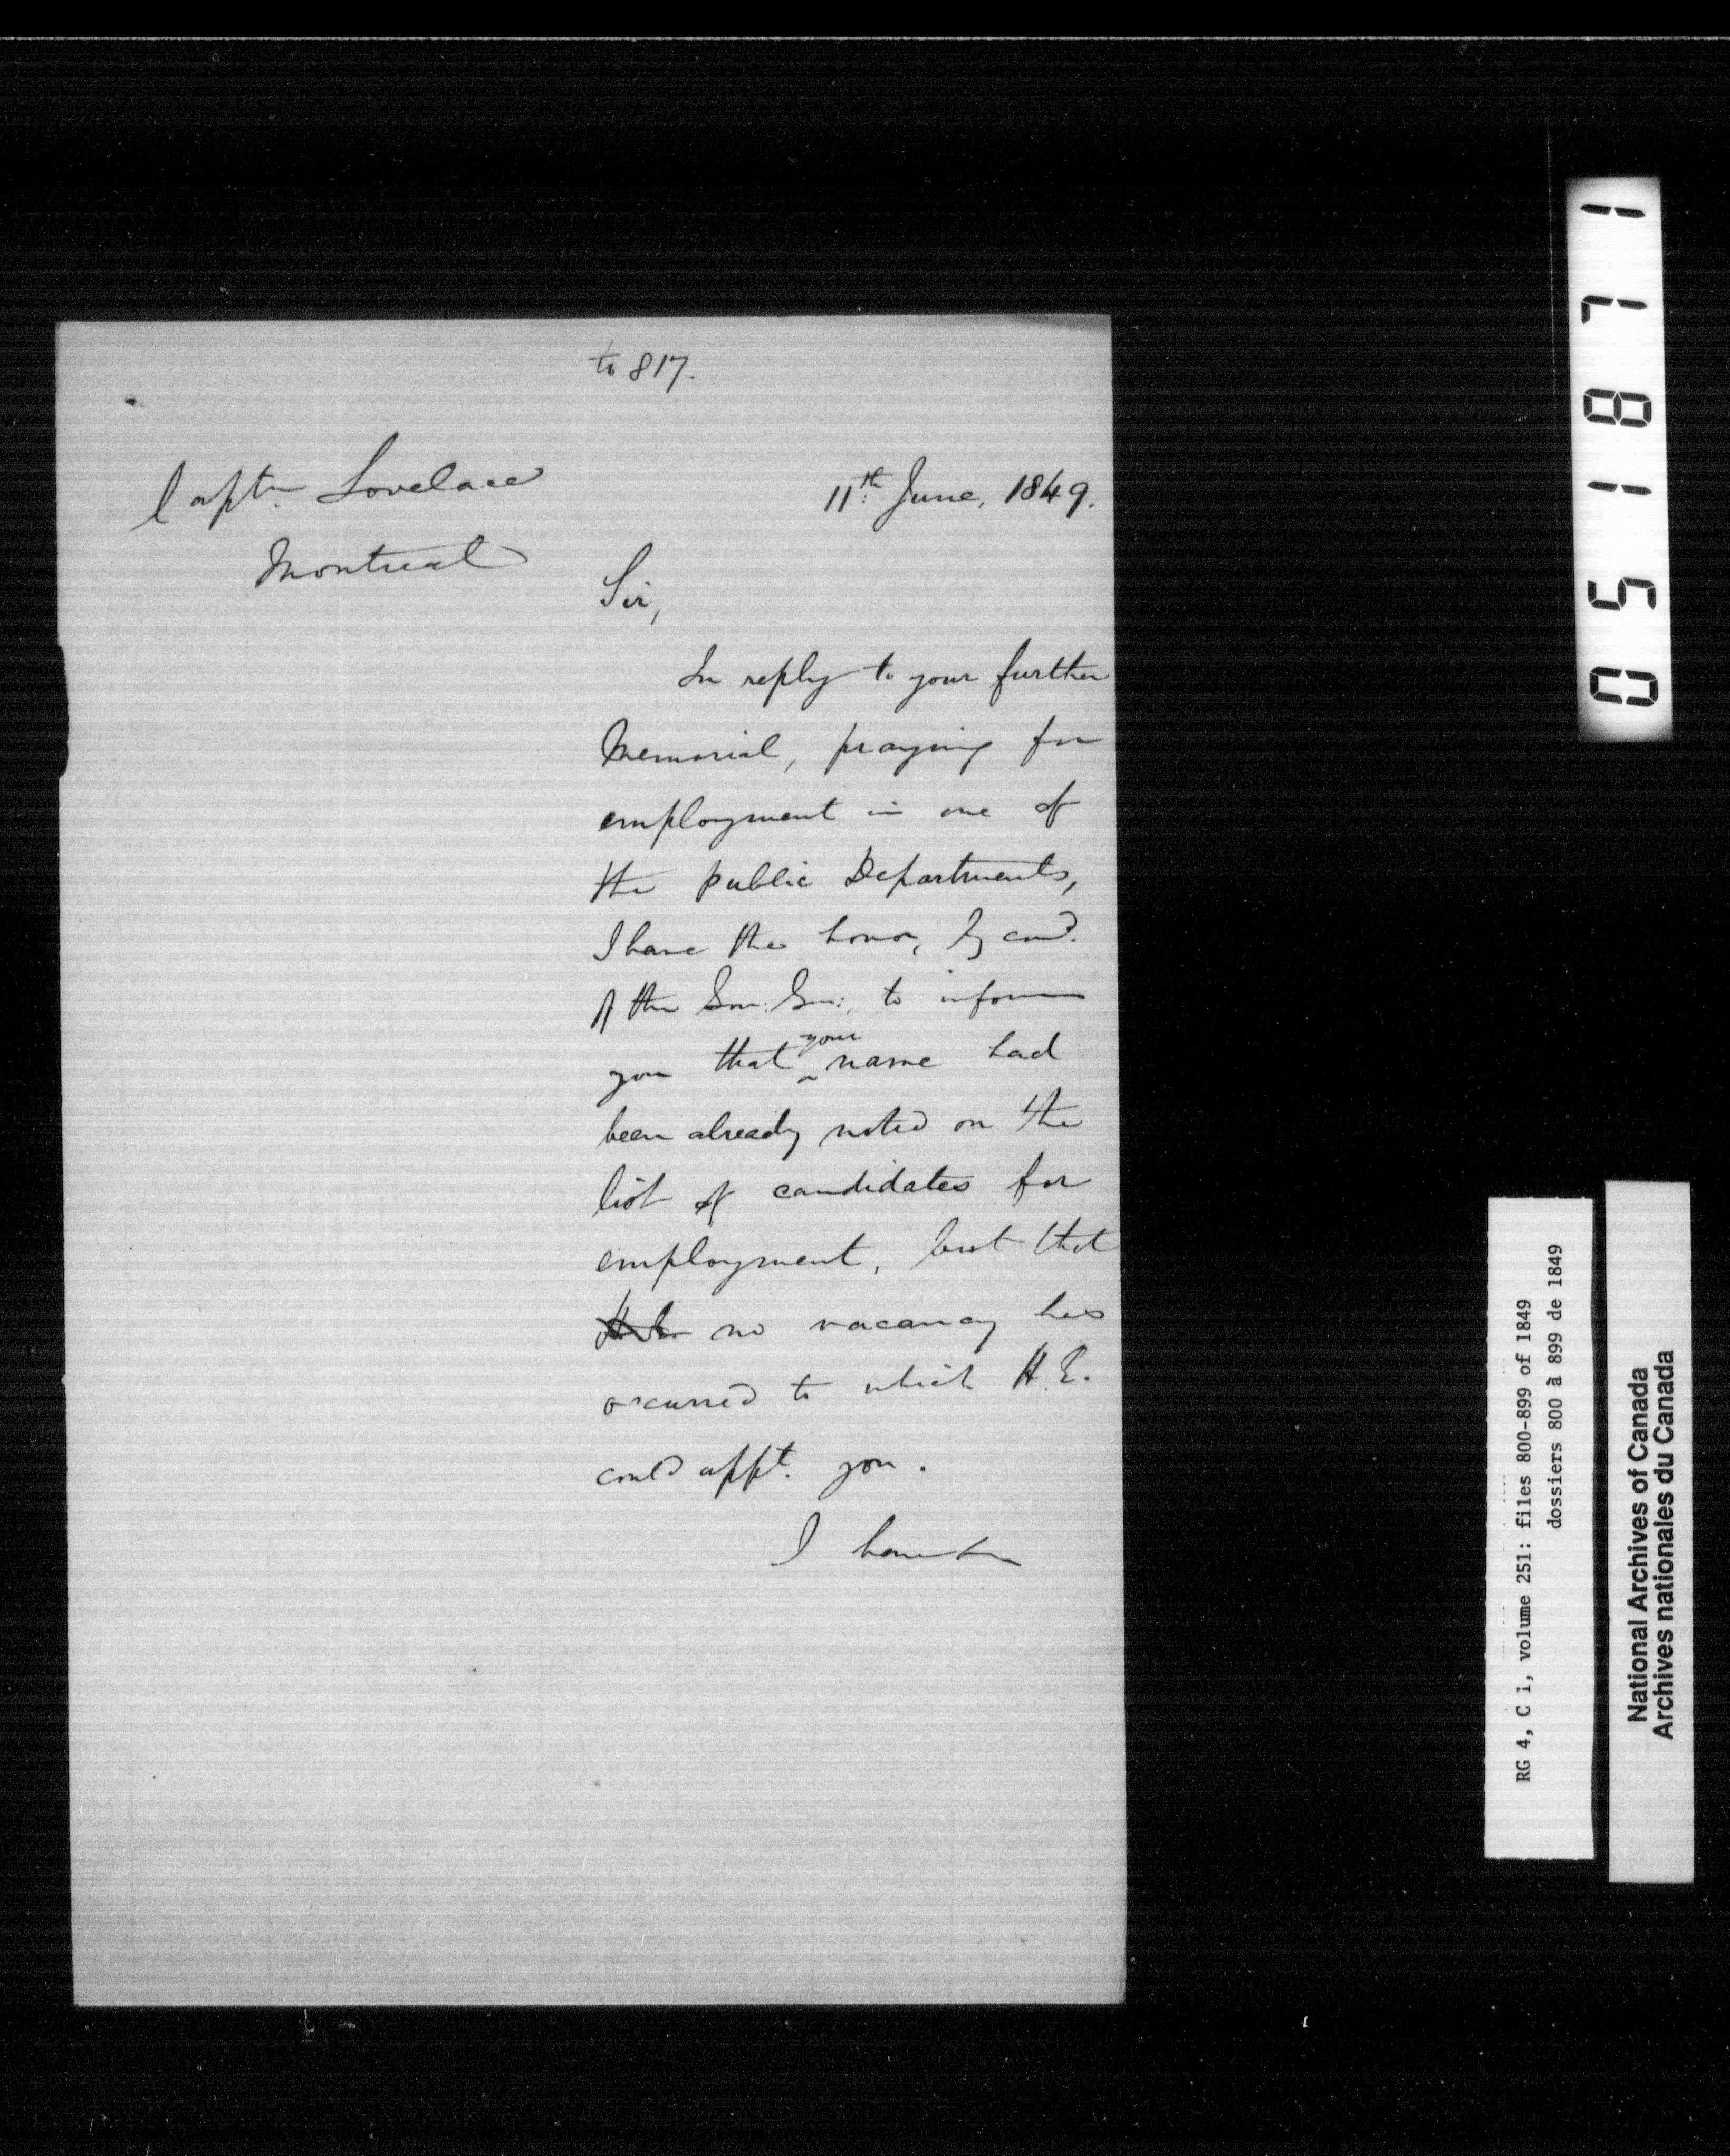 to 817.
Capt. Lovelace
Montreal
11th June, 1849.
Sir,
In reply to your further
Memorial, praying for
employment in one of
the public Departments,
I have the honor, by comd.
of the Gov: Gen:, to inform
you that your name had
been already noted on the
list of candidates for
employment, but that
no vacancy has
occurred to which H.E.
could appt. you.
I have
RG 4, C 1, volume 251: files 800-899 of 1849
dossiers 800 à 899 de 1849
National Archives of Canada
Archives nationales du Canada
051871